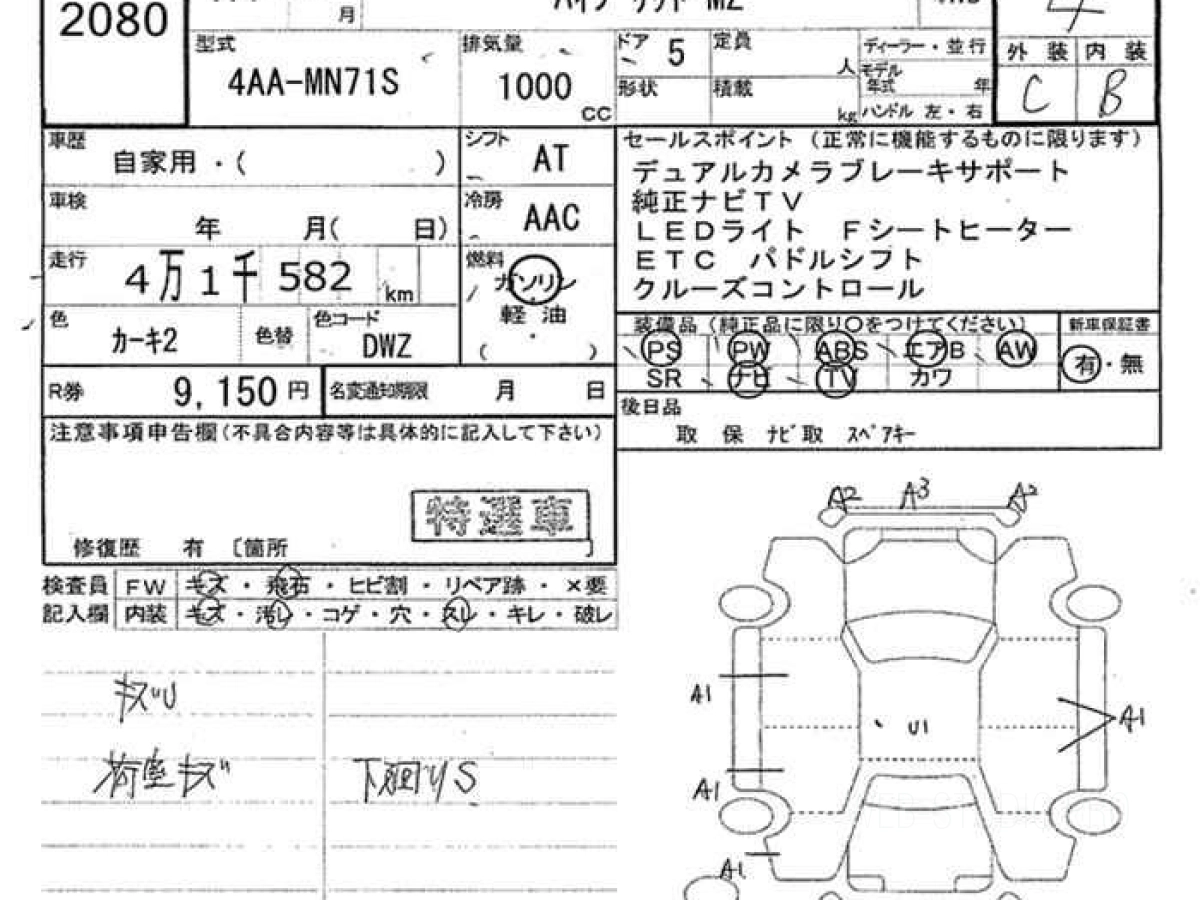 2080
月
ハイブリッド MZ
4
型式
4AA-MN71S
排気量
1000
cc
ドア 5
形状
定員
人
積載
kg
ディーラー・並行
モデル年式 年
ハンドル 左・右
外装 内装
C B
車歴
自家用・( )
シフト
AT
車検
年 月( 日)
冷房
AAC
走行
4万1千582 km
燃料
ガソリン
軽油
( )
色
カーキ2
色替
色コード
DWZ
R券 9,150円
名変通知期限 月 日
セールスポイント (正常に機能するものに限ります)
デュアルカメラブレーキサポート
純正ナビTV
LEDライト Fシートヒーター
ETC パドルシフト
クルーズコントロール
装備品(純正品に限り○をつけてください)
新車保証書
PS PW ABS エアB AW
有・無
SR ナビ TV カワ
後日品
取 保 ナビ取 スペアキー
注意事項申告欄(不具合内容等は具体的に記入して下さい)
特選車
修復歴 有 〔箇所 〕
検査員 FW キズ・飛石・ヒビ割・リペア跡・×要
記入欄 内装 キズ・汚レ・コゲ・穴・スレ・キレ・破レ
キズU
荷室キズ
下廻りS
A2 A3 A2
A1
A1
U1
A1
A1